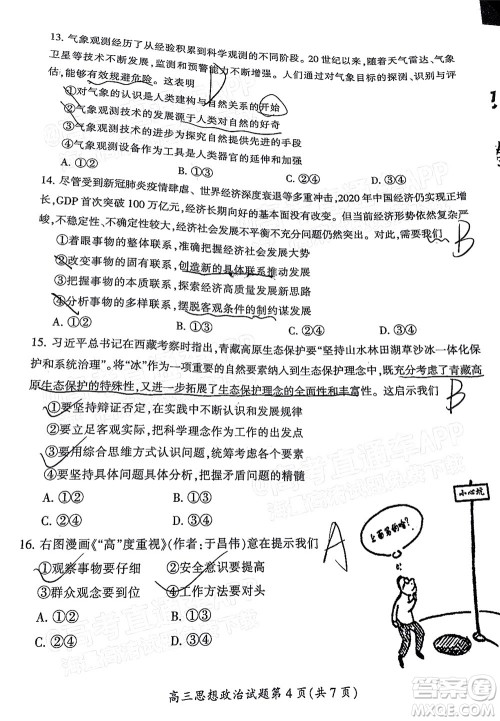 13. 气象观测经历了从经验积累到科学观测的不同阶段。20 世纪以来，随着天气雷达、气象
卫星等技术不断发展，监测和预警能力不断增强。人们可以对气象目标的探测、识别与评
估，能够有效规避危险。这表明
①对气象的认识是人类建构与自然关系的开始
②气象观测技术的发展源于人类对自然的好奇
③气象观测技术的发展提供实践先进的手段
④气象设备作为工具是人类器官的延伸和加强
A. ①② B. ①③ C. ②④ D. ③④
D
14. 尽管受到新冠肺炎疫情肆虐、世界经济深度衰退等多重冲击，2020 年中国经济仍实现正增
长，GDP 首次突破 100 万亿元，我国经济向好的基本面没有改变。但当前经济形势仍然复杂严
峻，不稳定、不确定因素较多，疫情冲击导致的各类衍生风险问题仍然突出。对此，需要我们
B
①着眼事物的整体联系，准确把握经济社会发展大势
②改变事物的固有联系，创造新的具体联系推动发展
③把握事物的内在联系，探索经济高质量发展新思路
④分析事物的多样联系，摆脱客观条件的制约谋发展
A. ①② B. ①③ C. ②④ D. ③④
15. 习近平总书记在西藏考察时指出，青藏高原生态保护要“坚持山水林田湖草沙冰一体化保
护和系统治理”。将“冰”作为一项重要的自然要素纳入到生态保护理念中，既充分考虑了青藏高
原生态保护的特殊性，又进一步拓展了生态保护理念的全面性和丰富性。这启示我们
B
①要坚持辩证否定，在实践中不断认识和发展规律
②要坚持与时俱进，将科学理念作为工作的出发点
③要用综合思维方式认识问题，统筹考虑系统优化
④要坚持具体问题具体分析，把握看问题的精髓
A. ①② B. ①③ C. ②④ D. ③④
16. 右图漫画《“高”度重视》(作者:于昌伟)意在提示我们
A
①观察事物要仔细 ②安全意识要提高
③群众观念要到位 ④工作方法要对头
A. ①④ B. ①③
C. ②④ D. ②③
小心坑
上面写的啥？
高三思想政治试题第 4 页(共 7 页)